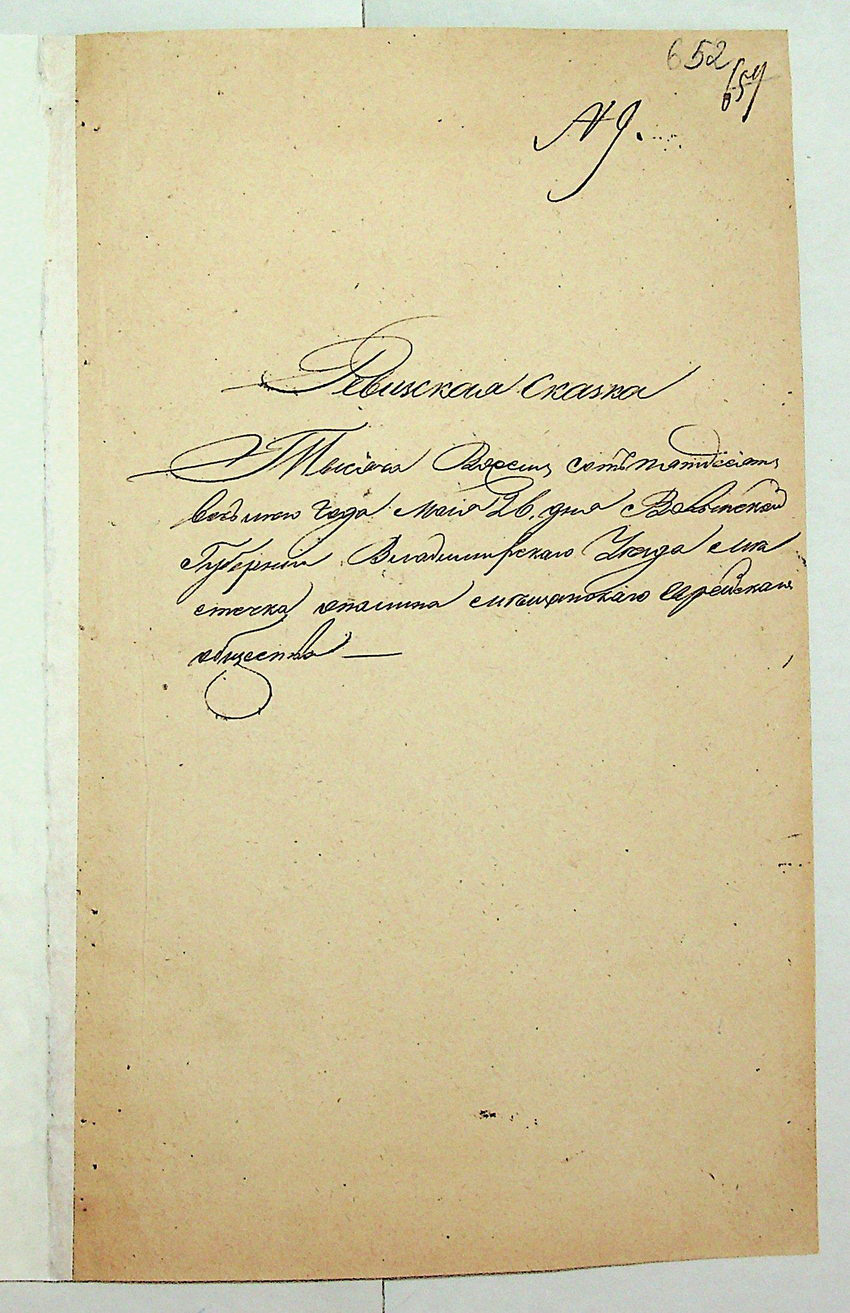 652
654
№ 9.
Ревизская сказка
Тысяча Восемь сотъ пятидесять
восьмаго года Мая 26 дня Волынской
Губерніи Владимирскаго Уѣзда мѣ
стечка мѣщанскаго Еврейскаго
общества